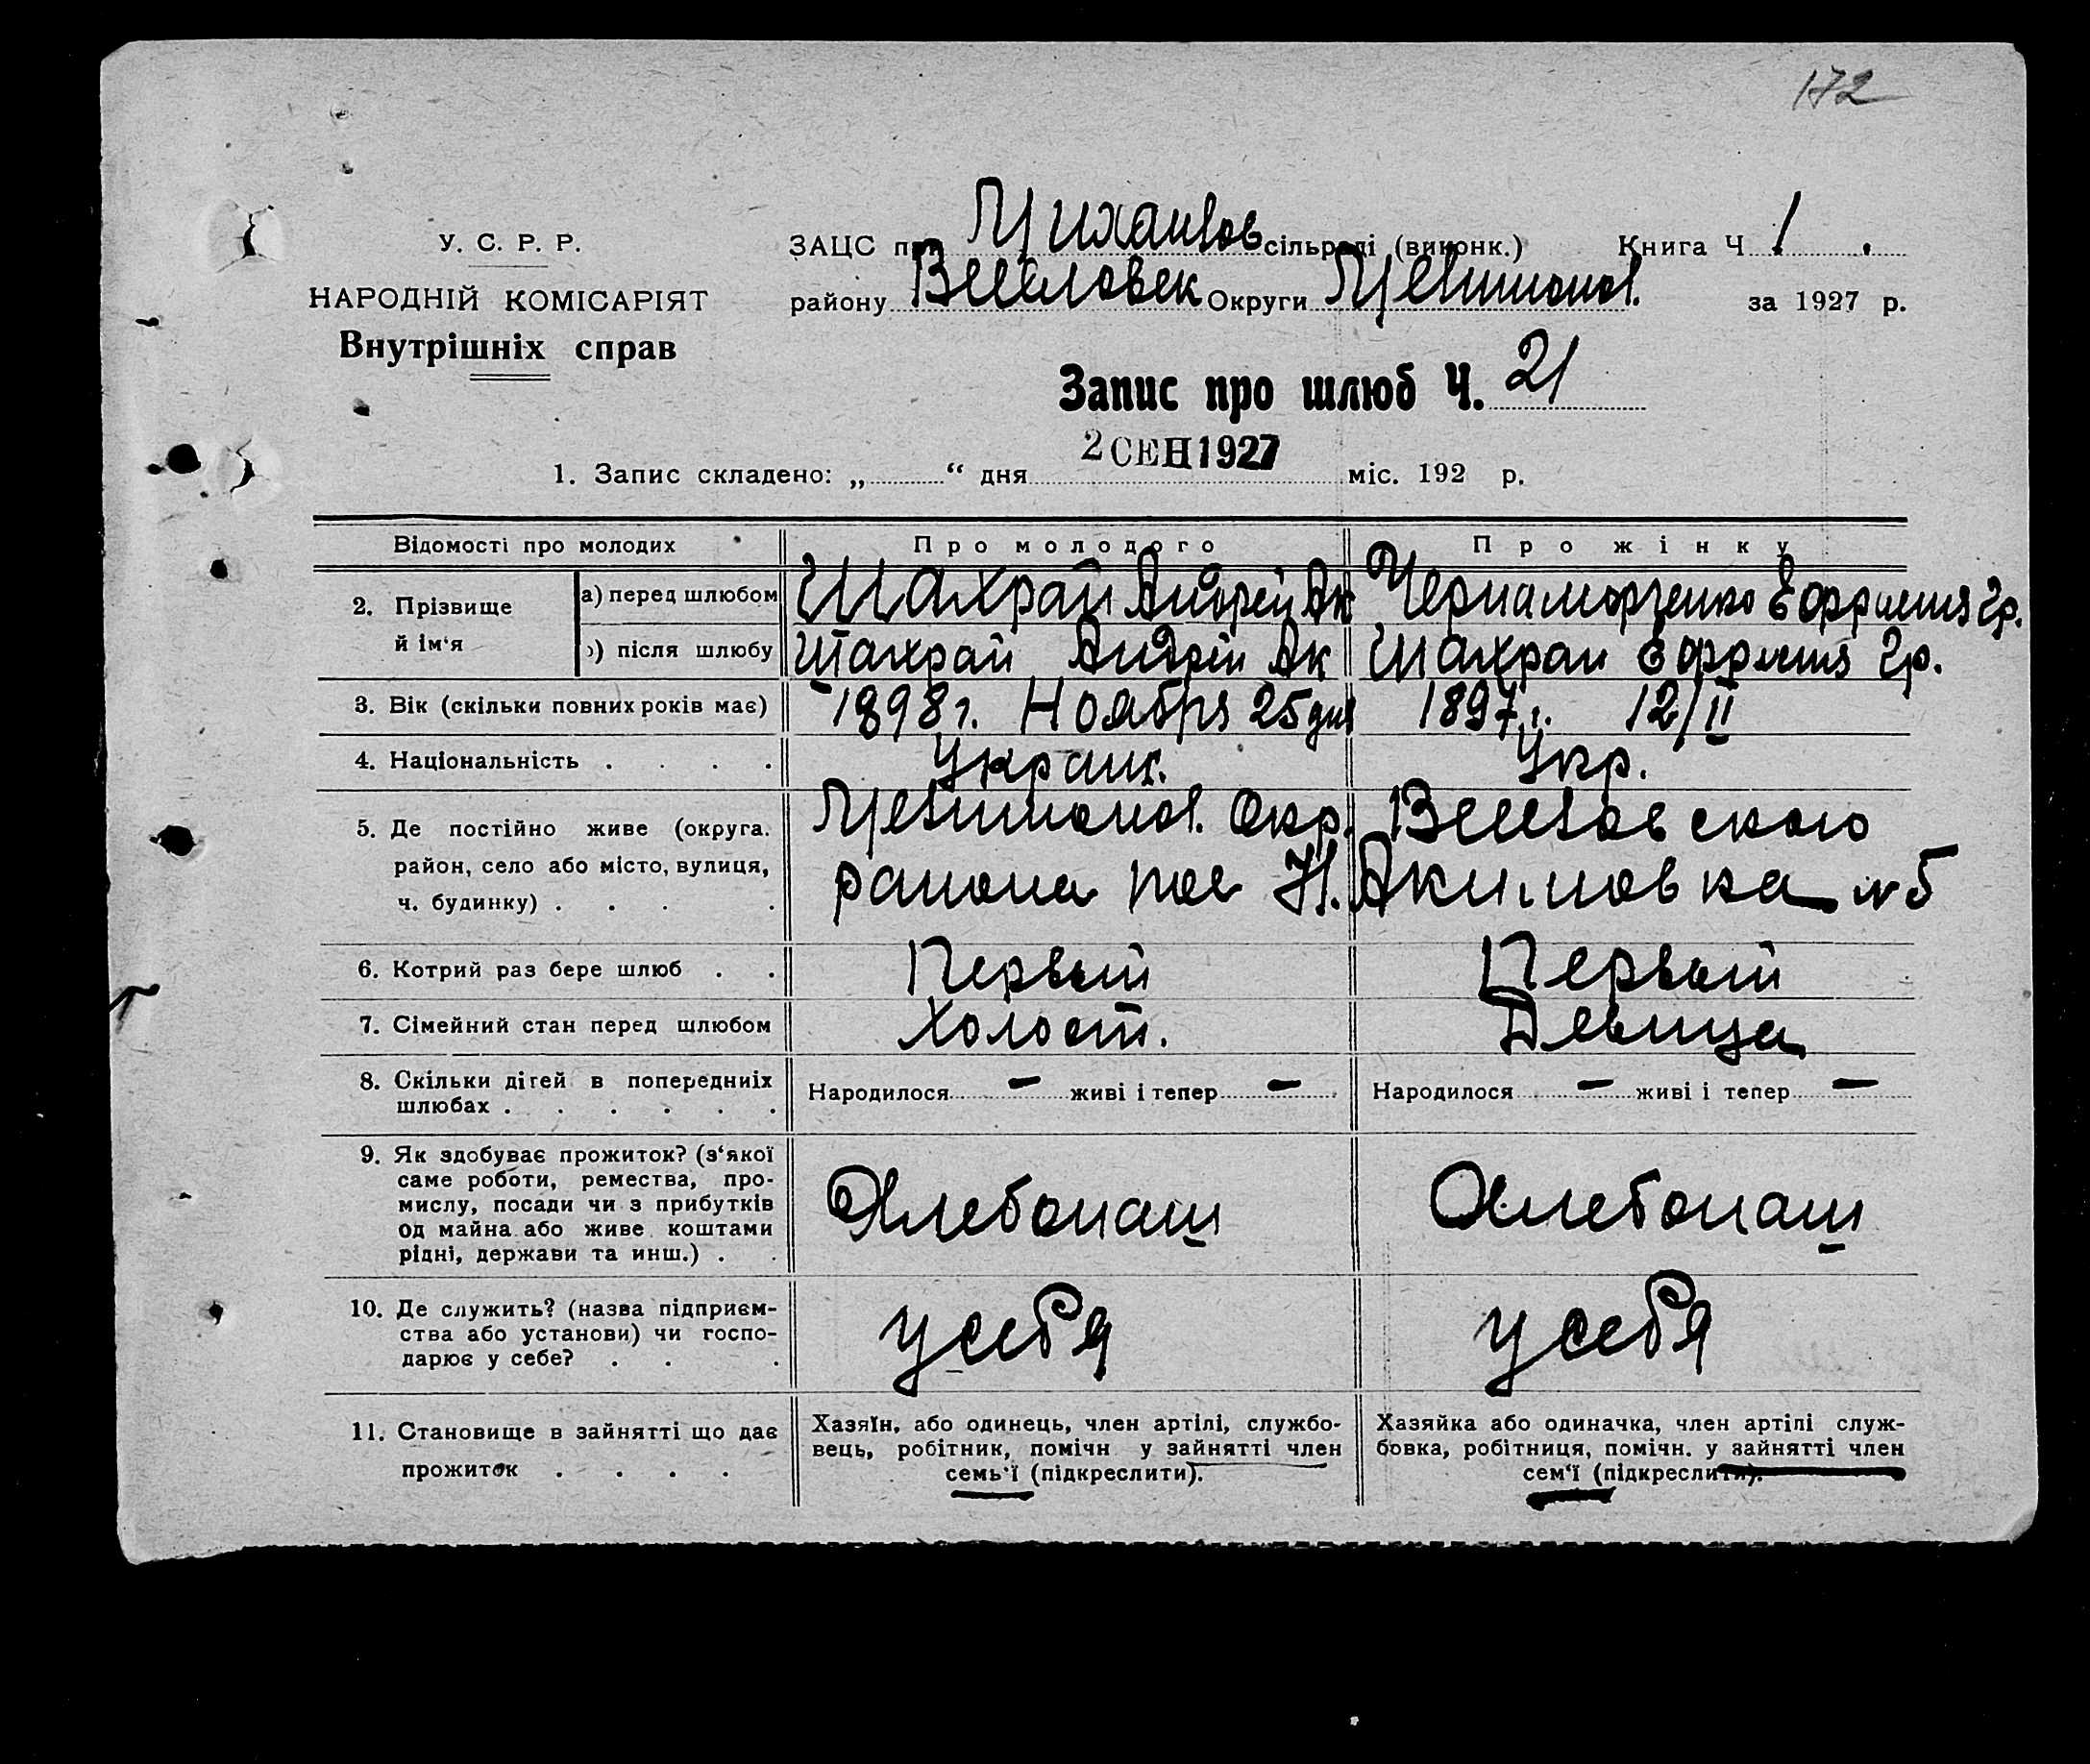 172
У. С. Р. Р.
НАРОДНІЙ КОМІСАРІЯТ
Внутрішніх справ
ЗАЦС при Михайлов сільраді (виконк.) Книга Ч 1.
району Веселовск Округи Мелитопол. за 1927 р.
Запис про шлюб Ч. 21
2 СЕН 1927
1. Запис складено: „ “ дня міс. 192 р.
Відомості про молодих Про молодого Про жінку
2. Прізвище й ім‘я
а) перед шлюбом Шахрай Андрей Ак Черноморченко Гр.
після шлюбу Шахрай Андрей Ак Шахрай Гр.
3. Вік (скільки повних років має) 1898 г. Ноября 25 дня 1897 г. 12/II
4. Національність . . . . Украин. Укр.
5. Де постійно живе (округа. район, село або місто, вулиця, ч. будинку) . . . .
Мелитопол. Окр. Веселовского
района пос Н. Акимовка № 5
6. Котрий раз бере шлюб . . Первый Первый
7. Сімейний стан перед шлюбом Холост. Девица
8. Скільки дітей в попередниїх шлюбах . . . . . . Народилося — живі і тепер — Народилося — живі і тепер —
9. Як здобуває прожиток? (з‘якої
саме роботи, ремества, про-
мислу, посади чи з прибутків
од майна або живе коштами
рідні, держави та инш.) . .
Хлебопаш Хлебопаш
10. Де служить? (назва підприєм-
ства або установи) чи госпо-
дарює у себе? . . .
у себя у себя
11. Становище в зайнятті що дає
прожиток . . . .
Хазяїн, або одинець, член артілі, службо-
вець, робітник, помічн у зайнятті член
семь‘ї (підкреслити).
Хазяйка або одиначка, член артілі служ-
бовка, робітниця, помічн. у зайнятті член
сем‘ї (підкреслити).